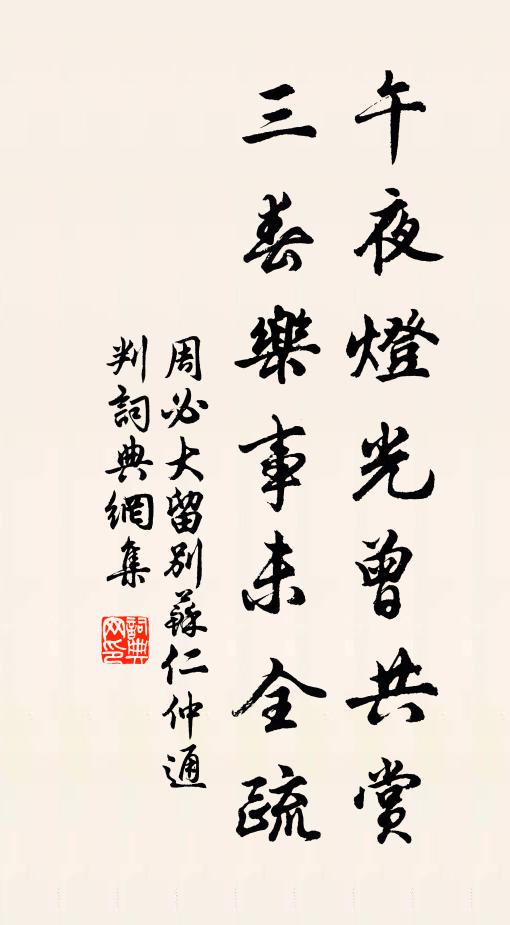 午夜燈光曾共賞
三春樂事未全疏
周必大留別蘇仁仲通
判詞典網集
詞典
网印